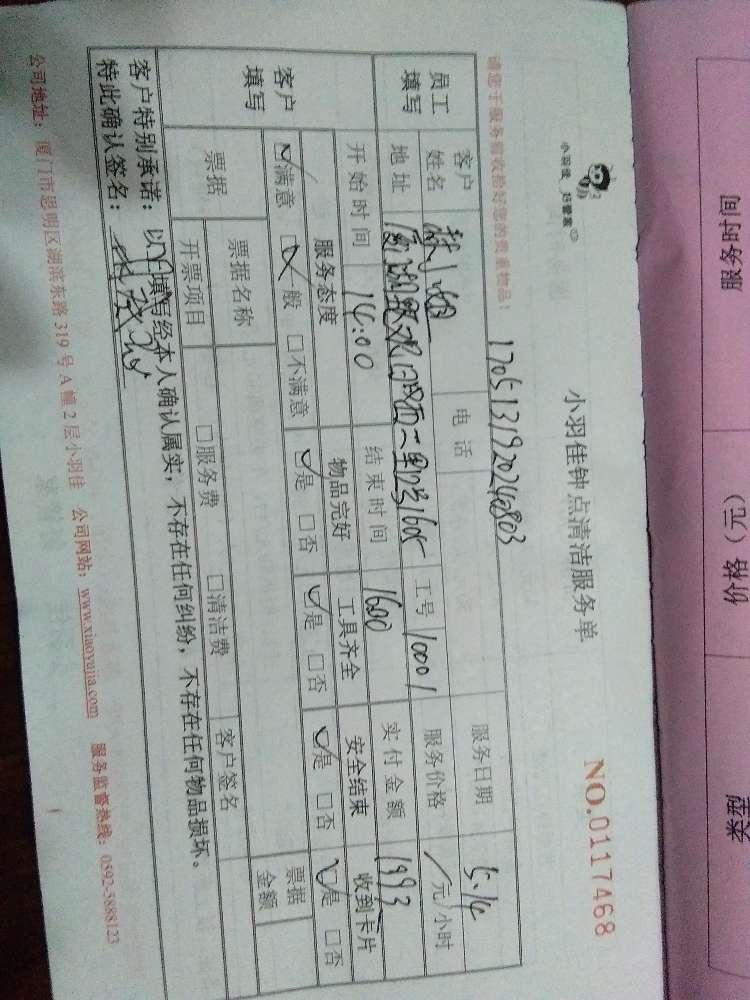 小羽佳 好管家
小羽佳钟点清洁服务单
NO.0117468
请您于服务前收拾好您的贵重物品!
1705131920240803
服务日期 5.14
员工填写
客户姓名
电话
工号 10001
服务价格 元/小时
地址
实付金额 1993
客户填写
开始时间 14:00
结束时间 1600
服务态度 物品完好 工具齐全 安全结束 收到卡片
☑满意 □一般 □不满意 ☑是 □否 ☑是 □否 ☑是 □否 ☑是 □否
票据 票据名称 票据金额
开票项目 □服务费 □清洁费 客户签名
客户特别承诺:以上填写经本人确认属实,不存在任何纠纷,不存在任何物品损坏。
特此确认签名:
公司地址:厦门市思明区湖滨东路319号A幢2层小羽佳 公司网站:www.xiaoyujia.com 服务监督热线:0592-5888123
服务时间
价格(元)
类型